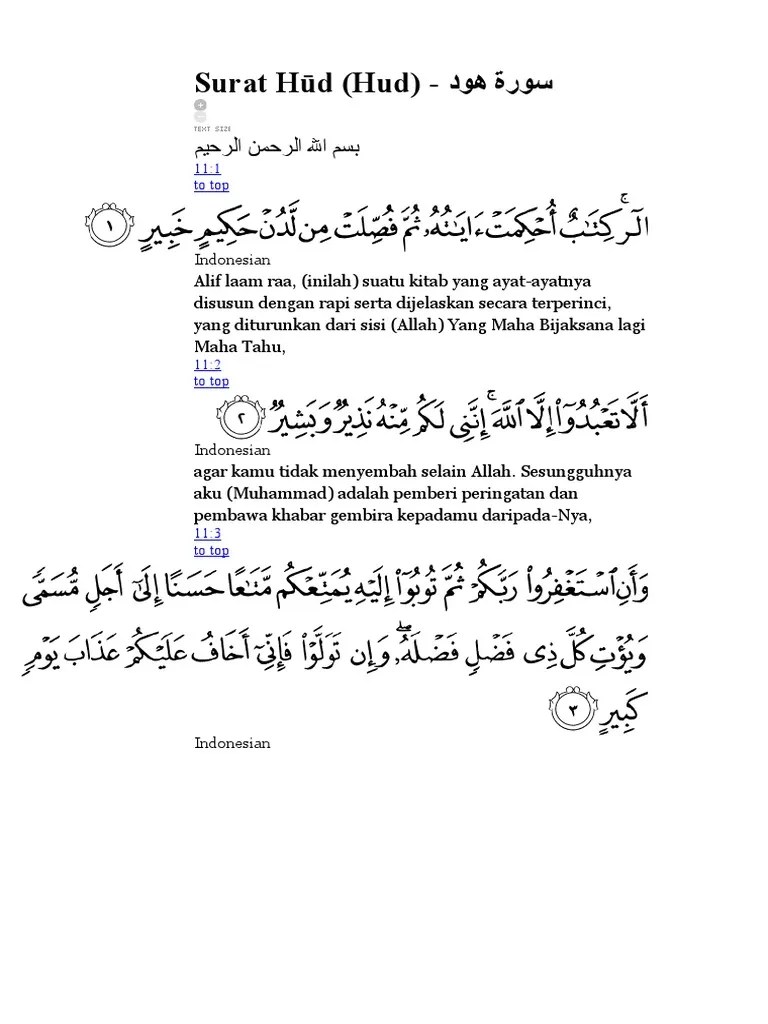 Surat Hūd (Hud) - سورة هود
TEXT SIZE
بسم الله الرحمن الرحيم
11:1
to top
الٓر ۚ كِتَٰبٌ أُحْكِمَتْ ءَايَٰتُهُۥ ثُمَّ فُصِّلَتْ مِن لَّدُنْ حَكِيمٍ خَبِيرٍ ١
Indonesian
Alif laam raa, (inilah) suatu kitab yang ayat-ayatnya
disusun dengan rapi serta dijelaskan secara terperinci,
yang diturunkan dari sisi (Allah) Yang Maha Bijaksana lagi
Maha Tahu,
11:2
to top
أَلَّا تَعْبُدُوٓا۟ إِلَّا ٱللَّهَ ۚ إِنَّنِى لَكُم مِّنْهُ نَذِيرٌ وَبَشِيرٌ ٢
Indonesian
agar kamu tidak menyembah selain Allah. Sesungguhnya
aku (Muhammad) adalah pemberi peringatan dan
pembawa khabar gembira kepadamu daripada-Nya,
11:3
to top
وَأَنِ ٱسْتَغْفِرُوا۟ رَبَّكُمْ ثُمَّ تُوبُوٓا۟ إِلَيْهِ يُمَتِّعْكُم مَّتَٰعًا حَسَنًا إِلَىٰٓ أَجَلٍ مُّسَمًّى
وَيُؤْتِ كُلَّ ذِى فَضْلٍ فَضْلَهُۥ ۖ وَإِن تَوَلَّوْا۟ فَإِنِّىٓ أَخَافُ عَلَيْكُمْ عَذَابَ يَوْمٍ
كَبِيرٍ ٣
Indonesian